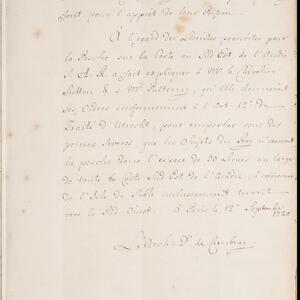 sont pour l'apprêt de leur Poisson.
À l'égard des Limites prescrites pour
la Pesche sur la Coste au Sud Est de l'Acadie
S. A. R. a fait expliquer à Mr. le Chevalier
Sutton & à Mr. Pulteney, qu'Elle donneroit
ses Ordres conformement à l'Art. 12e du
Traité d'Utrecht, pour empescher sous des
peines severes que les Sujets du Roy n'ausent
la pesche dans l'espace de 30 Lieues au large
de toute la Coste Sud Est de l'Acadie, à commencer
de l'Isle de Sable inclusivement tirant
vers le Sud Ouest. à Paris le 12e Septembre
1720
L'Arch. D. de Cambray.